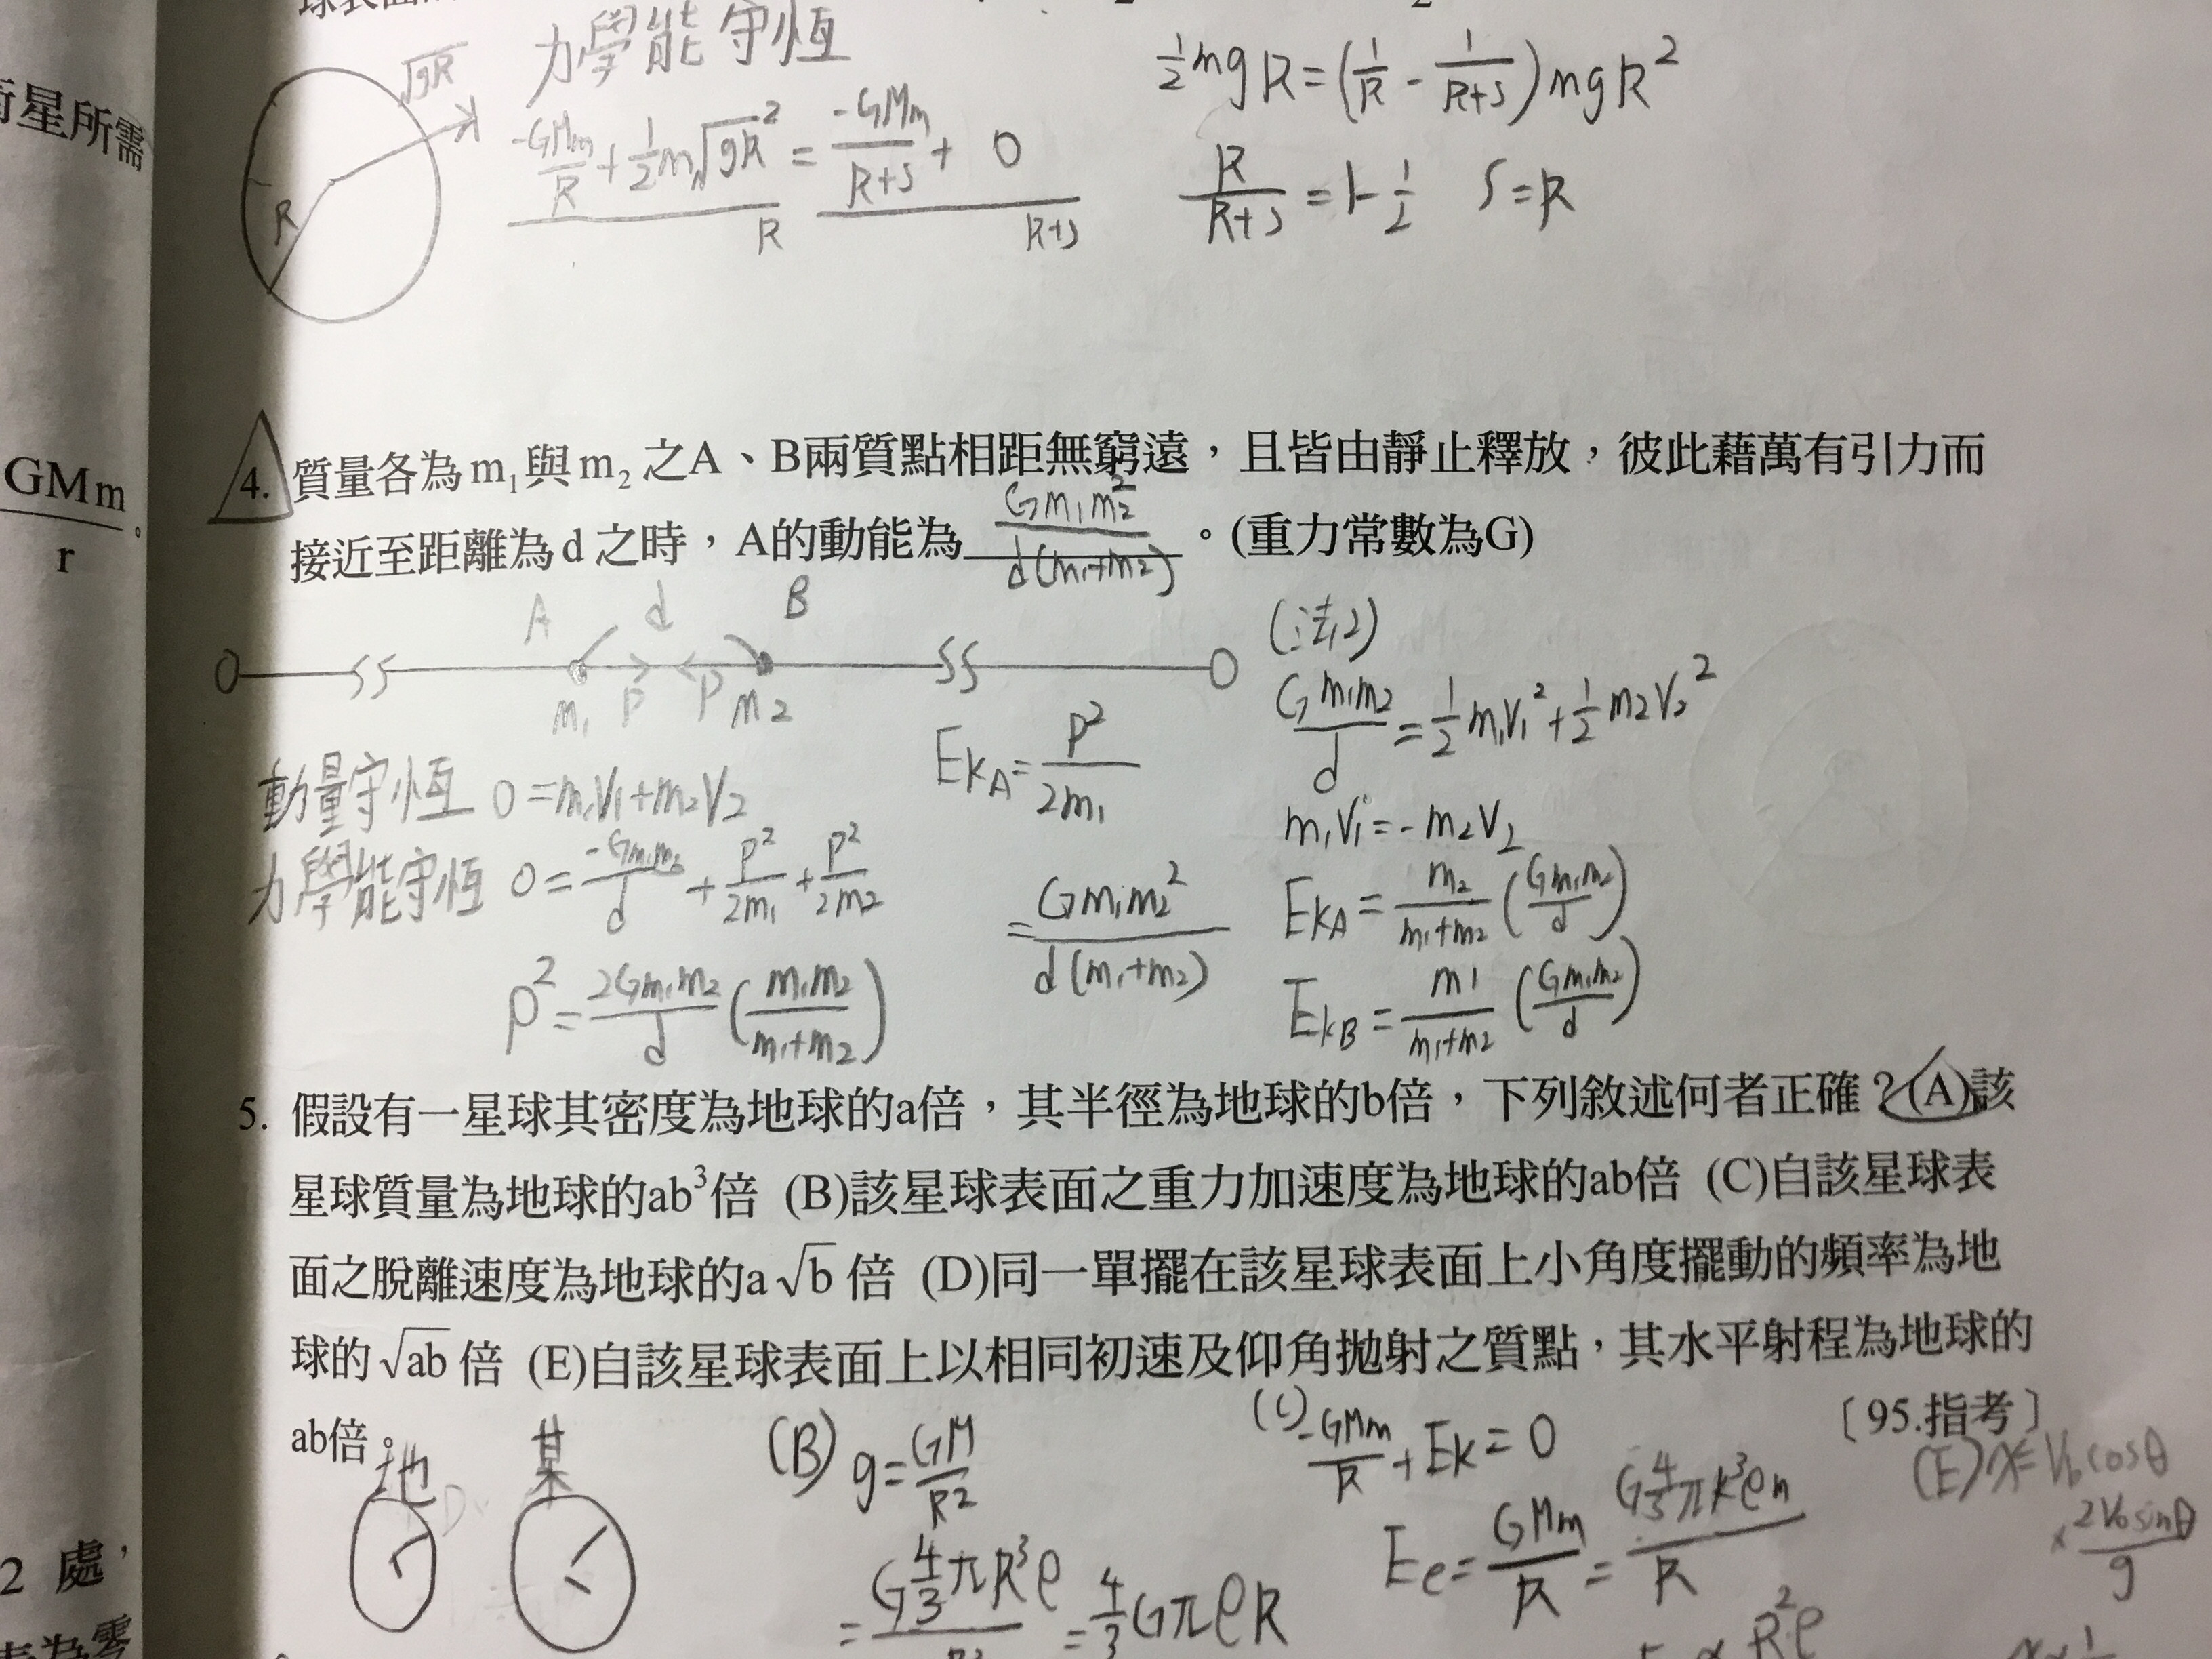 星所需
GMm
r
。
2 處，
力學能守恆
√gR
R
-GMm/R + 1/2 m√gR² = -GMm/R+s + 0
R
R+s
1/2 mgR = (1/R - 1/R+s) mgR²
R/R+s = 1-1/2 S=R
4. 質量各為m₁與m₂之A、B兩質點相距無窮遠，且皆由靜止釋放，彼此藉萬有引力而
接近至距離為d之時，A的動能為 Gm₁m₂²/d(m₁+m₂) 。(重力常數為G)
A d B
m₁ P P m₂
動量守恆 0=m₁V₁+m₂V₂
力學能守恆 0= -Gm₁m₂/d + P²/2m₁ + P²/2m₂
P² = 2Gm₁m₂/d (m₁m₂/m₁+m₂)
EkA = P²/2m₁
= Gm₁m₂²/d(m₁+m₂)
(法2)
Gm₁m₂/d = 1/2 m₁V₁² + 1/2 m₂V₂²
m₁V₁ = -m₂V₂
EkA = m₂/m₁+m₂ (Gm₁m₂/d)
EkB = m1/m₁+m₂ (Gm₁m₂/d)
5. 假設有一星球其密度為地球的a倍，其半徑為地球的b倍，下列敘述何者正確？(A)該
星球質量為地球的ab³倍 (B)該星球表面之重力加速度為地球的ab倍 (C)自該星球表
面之脫離速度為地球的a√b倍 (D)同一單擺在該星球表面上小角度擺動的頻率為地
球的√ab倍 (E)自該星球表面上以相同初速及仰角拋射之質點，其水平射程為地球的
ab倍。
〔95.指考〕
地 某
(B) g = GM/R²
= G4/3πR³ρ/R² = 4/3 GπρR
(C) -GMm/R + Ek = 0
Ee = GMm/R = G4/3πR³ρm/R
R²ρ
(E) x = V₀cosθ
× 2V₀sinθ/g